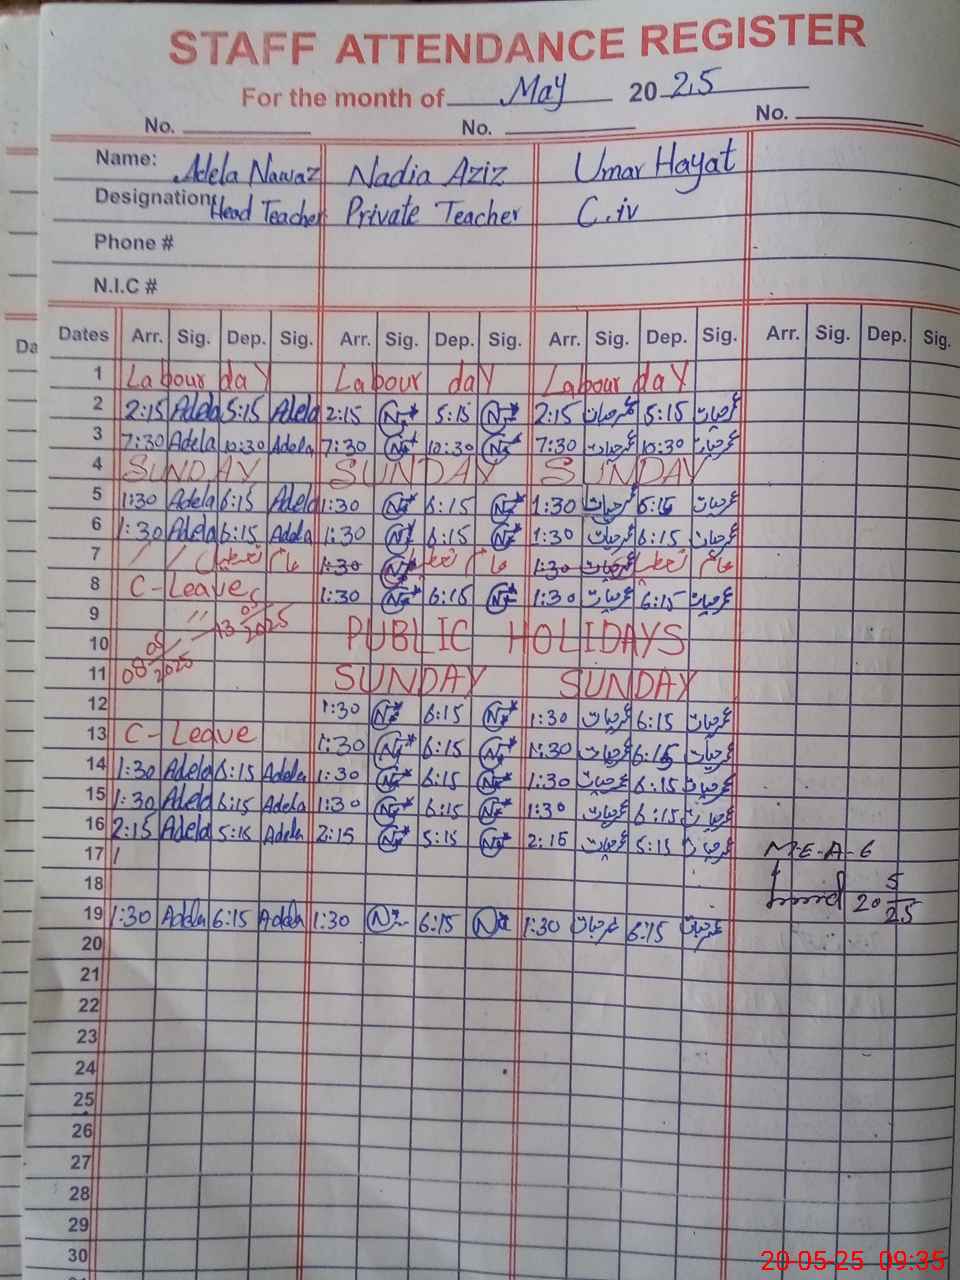 STAFF ATTENDANCE REGISTER
For the month of May 2025
No. No. No.
Name: Adela Nawaz Nadia Aziz Umar Hayat
Designation: Head Teacher Private Teacher C.iv
Phone #
N.I.C #
Da Dates Arr. Sig. Dep. Sig. Arr. Sig. Dep. Sig. Arr. Sig. Dep. Sig. Arr. Sig. Dep. Sig.
1 Labour day Labour day Labour day
2 2:15 Adela 5:15 Adela 2:15 5:15 2:15 عمرحیات 5:15 عمرحیات
3 7:30 Adela 10:30 Adela 7:30 10:30 7:30 عمرحیات 10:30 عمرحیات
4 SUNDAY SUNDAY SUNDAY
5 1:30 Adela 6:15 Adela 1:30 6:15 1:30 عمرحیات 6:15 عمرحیات
6 1:30 Adela 6:15 Adela 1:30 6:15 1:30 عمرحیات 6:15 عمرحیات
7 عام تعطیل 1:30 عام تعطیل 1:30 عمرحیات عام تعطیل
8 C-Leave 1:30 6:15 1:30 عمرحیات 6:15 عمرحیات
9 08/05/2025 13/05/2025
10 PUBLIC HOLIDAYS
11 SUNDAY SUNDAY
12 1:30 6:15 1:30 عمرحیات 6:15 عمرحیات
13 C-Leave 1:30 6:15 1:30 عمرحیات 6:15 عمرحیات
14 1:30 Adela 6:15 Adela 1:30 6:15 1:30 عمرحیات 6:15 عمرحیات
15 1:30 Adela 6:15 Adela 1:30 6:15 1:30 عمرحیات 6:15 عمرحیات
16 2:15 Adela 5:15 Adela 2:15 5:15 2:15 عمرحیات 5:15 عمرحیات
17 M-E-A-6
18 20 5/25
19 1:30 Adela 6:15 Adela 1:30 6:15 1:30 عمرحیات 6:15 عمرحیات
20
21
22
23
24
25
26
27
28
29
30
20-05-25 09:35